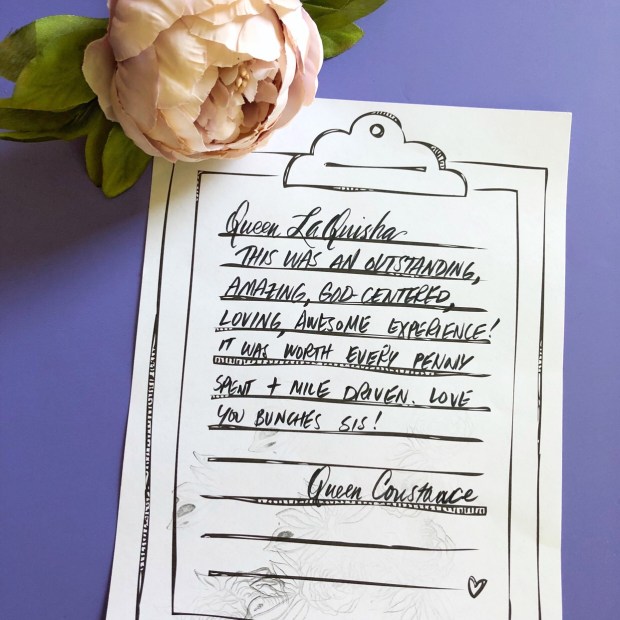 Queen LaQuisha
THIS WAS AN OUTSTANDING,
AMAZING, GOD-CENTERED,
LOVING, AWESOME EXPERIENCE!
IT WAS WORTH EVERY PENNY
SPENT + MILE DRIVEN. LOVE
YOU BUNCHES SIS!
Queen Constance